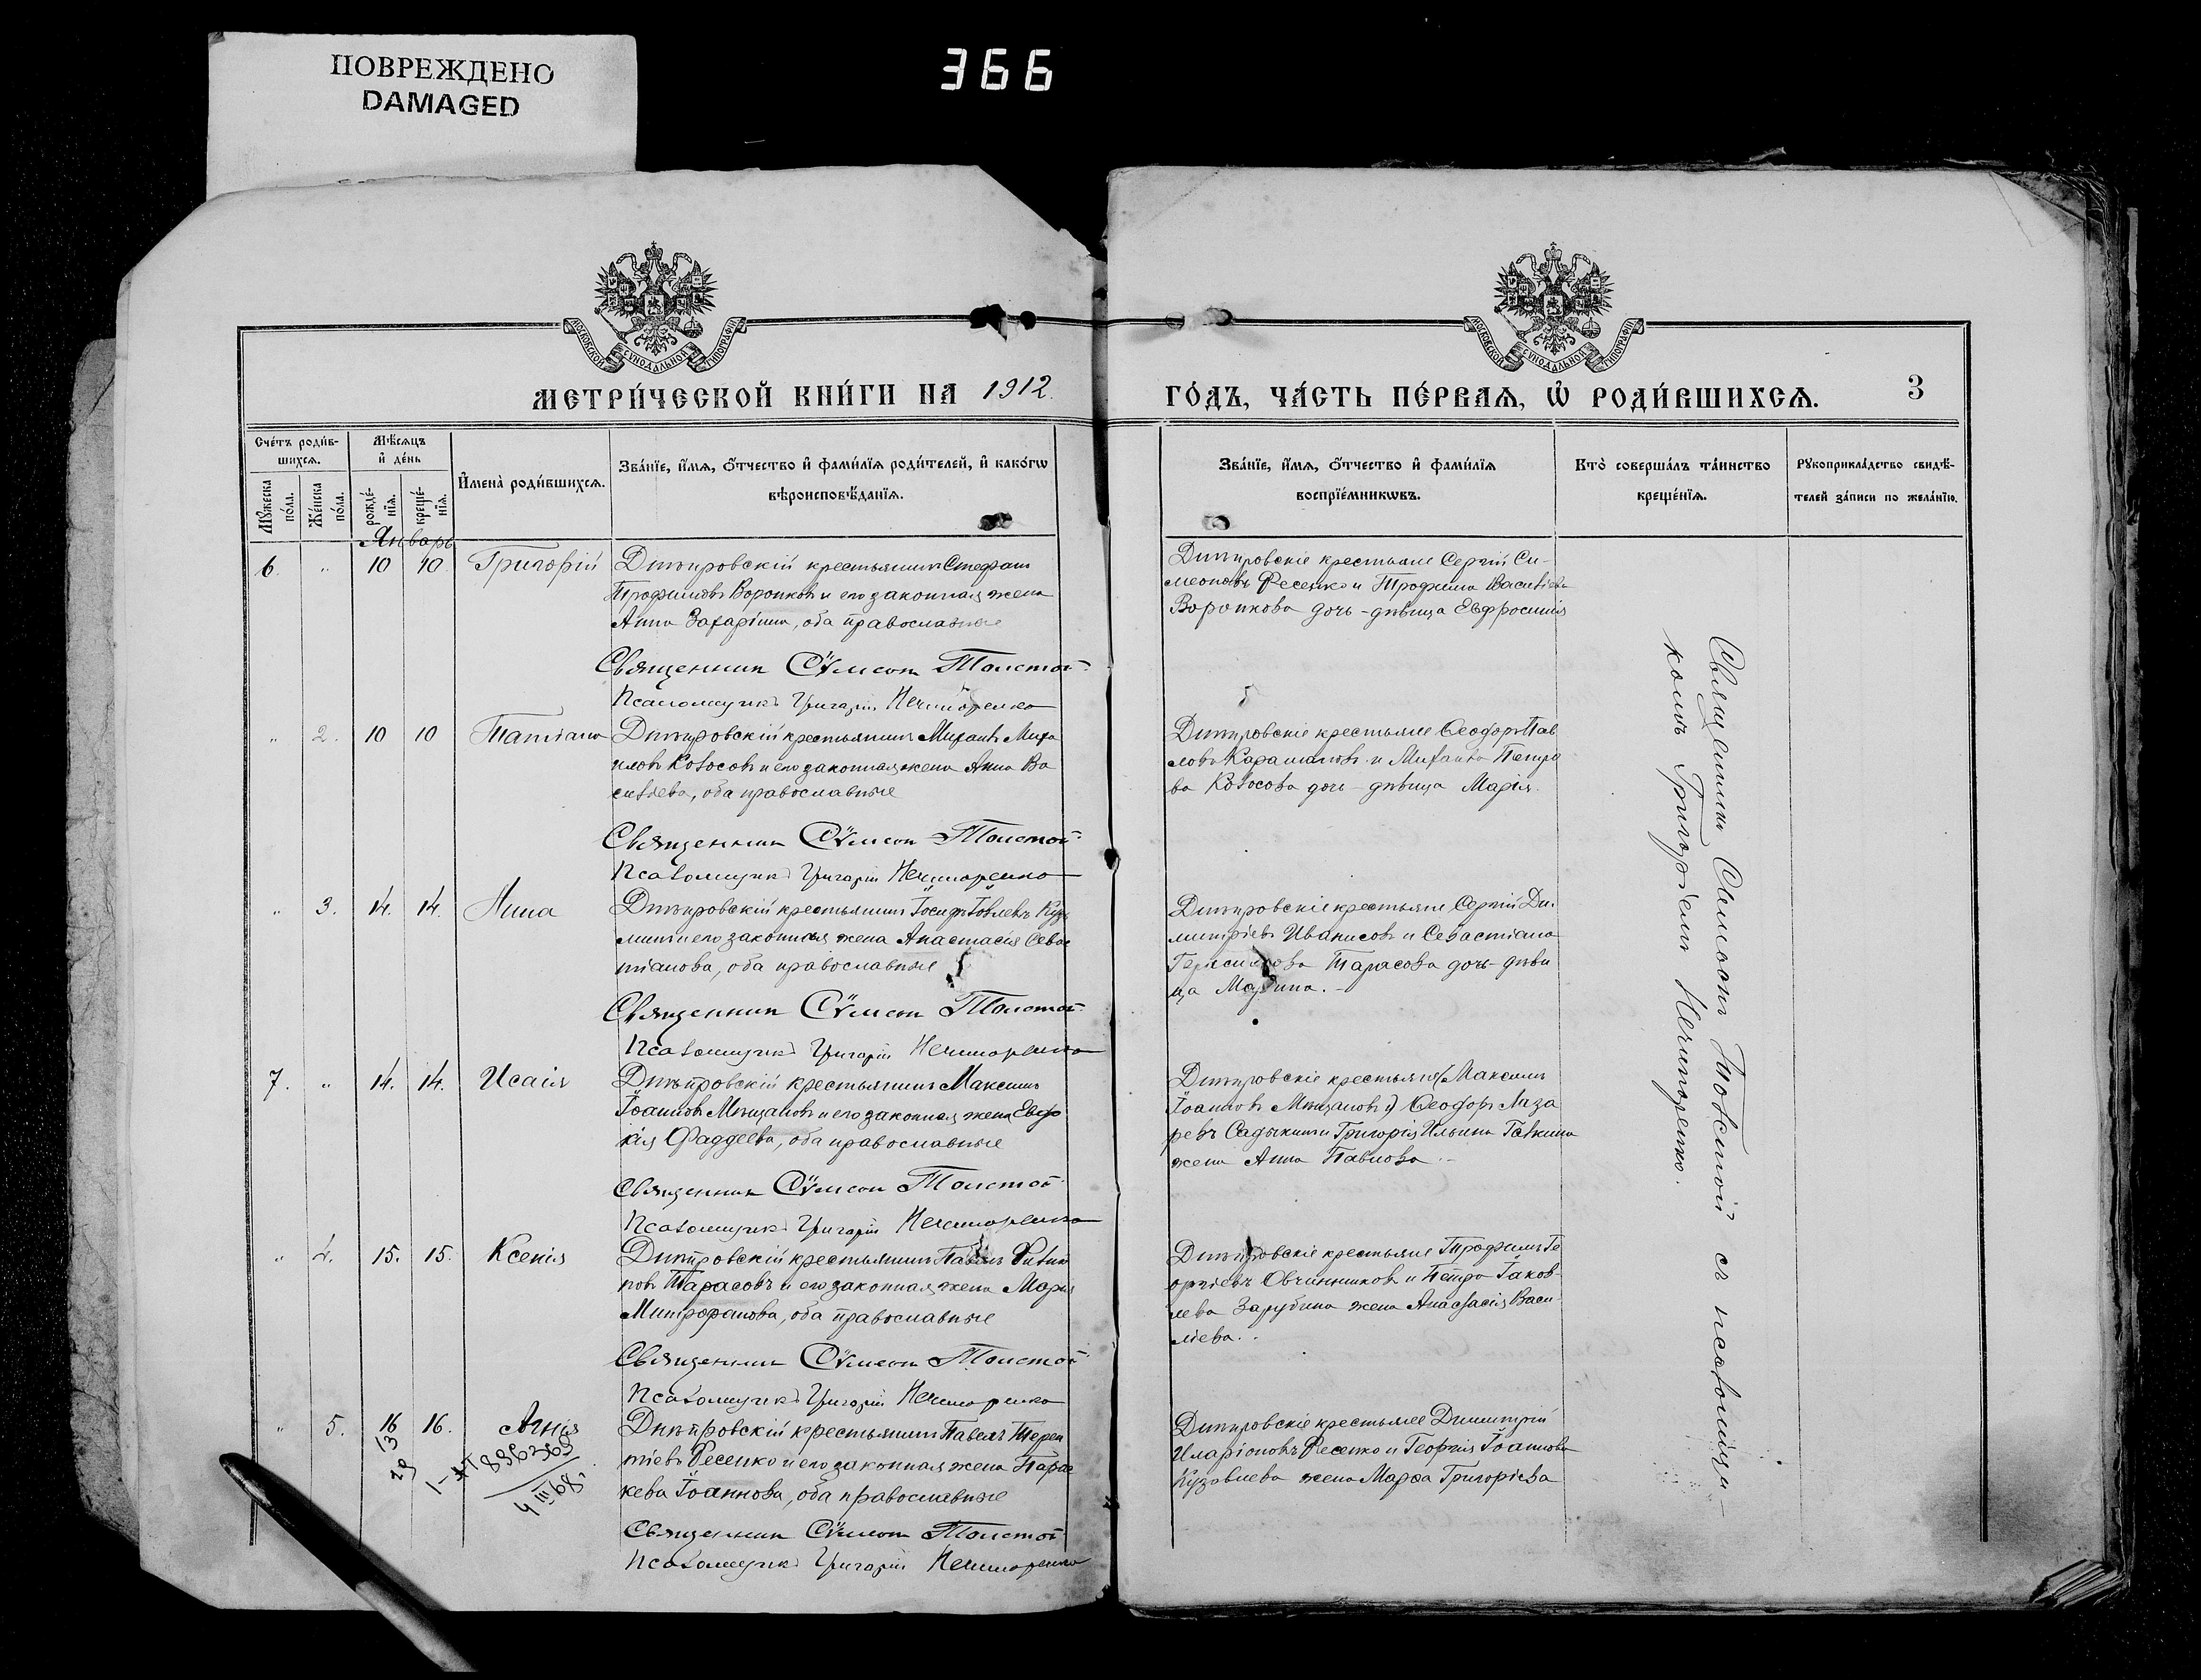 ПОВРЕЖДЕНО
DAMAGED
366
МОСКОВСКОЙ СѴНОДАЛЬНОЙ ТИПОГРАФІИ
МОСКОВСКОЙ СѴНОДАЛЬНОЙ ТИПОГРАФІИ
МЕТРИ́ЧЕСКОЙ КНИ́ГИ НА 1912.
ГО́ДЪ, ЧА́СТЬ ПЕ́РВАЯ, Ѡ РОДИ́ВШИХСЯ.
3
Сче́тъ роди́вшихся.
Мѣ́сяцъ и де́нь
Му́жеска по́ла.
Же́нска по́ла.
рожде́нія.
креще́нія.
Имена̀ роди́вшихся.
Зва́ніе, и́мя, о́тчество и фами́лія роди́телей, и како́гѡ
вѣроисповѣ́данія.
Зва́ніе, и́мя, о́тчество и фами́лія
воспріе́мникѡвъ.
Кто̀ соверша́лъ та́инство
креще́нія.
Рукоприкла́дство свидѣ́-
телей за́писи по жела́нію.
Январь
6. " 10 10 Григорій
Днѣпровскій крестьянинъ Стефанъ
Трофимовъ Воронковъ и его законная жена
Анна Захаріина, оба православные
Священникъ Сѵмеонъ Толстой
Псаломщикъ Григорій Нечипоренко
Днѣпровскіе крестьяне Сергій Си-
меоновъ Фесенко и Трофима Василіева
Воронкова дочь - дѣвица Евфросинія
" 2. 10 10 Татіана
Днѣпровскій крестьянинъ Михаилъ Миха
иловъ Колосовъ и его законная жена Анна Ва
силіева, оба православные
Священникъ Сѵмеонъ Толстой
Псаломщикъ Григорій Нечипоренко
Днѣпровскіе крестьяне Ѳеодоръ Пав
ловъ и Михаила Петро
ва Колосова дочь - дѣвица Марія.
" 3. 14. 14. Нина
Днѣпровскій крестьянинъ Іосифъ Іовлевъ Кузь
минъ и его законная жена Анастасія Севас
тіанова, оба православные
Священникъ Сѵмеонъ Толстой
Псаломщикъ Григорій Нечипоренко
Днѣпровскіе крестьяне Сергій Ди-
митріевъ Иванисовъ и Севастіана
Тарасова дочь - дѣви
ца
7. " 14. 14. Исаія
Днѣпровскій крестьянинъ Максимъ
Іоанновъ Мѣщановъ и его законная жена Евдо
кія Фаддеева, оба православные
Священникъ Сѵмеонъ Толстой
Псаломщикъ Григорій Нечипоренко
Днѣпровскіе крестьяне (Максимъ
Іоанновъ Мѣщановъ) Ѳеодоръ Лаза
ревъ Садыкинъ и Григорія Ильина Галкина
жена Анна Павлова
" 4. 15. 15. Ксенія
Днѣпровскій крестьянинъ Павелъ Филип
повъ Тарасовъ и его законная жена Марія
Митрофанова, оба православные
Священникъ Сѵмеонъ Толстой
Псаломщикъ Григорій Нечипоренко
Днѣпровскіе крестьяне Трофимъ Ге
оргіевъ Овчинниковъ и Петра Іаков-
лева Зарубина жена Анастасія Васи-
ліева.
" 5. 16 16. Агнія
13
29
1-АТ 8362369
4 III 68г.
Днѣпровскій крестьянинъ Павелъ Терен
тіевъ Фесенко и его законная жена Парас
кева Іоаннова, оба православные
Священникъ Сѵмеонъ Толстой
Псаломщикъ Григорій Нечипоренко
Днѣпровскіе крестьяне Димитрій
Иларіоновъ Фесенко и Георгія Іоаннова
Кузовлева жена Марѳа Григоріева
Священникъ Симеонъ Толстой съ псаломщи-
комъ Григоріемъ Нечипоренко.